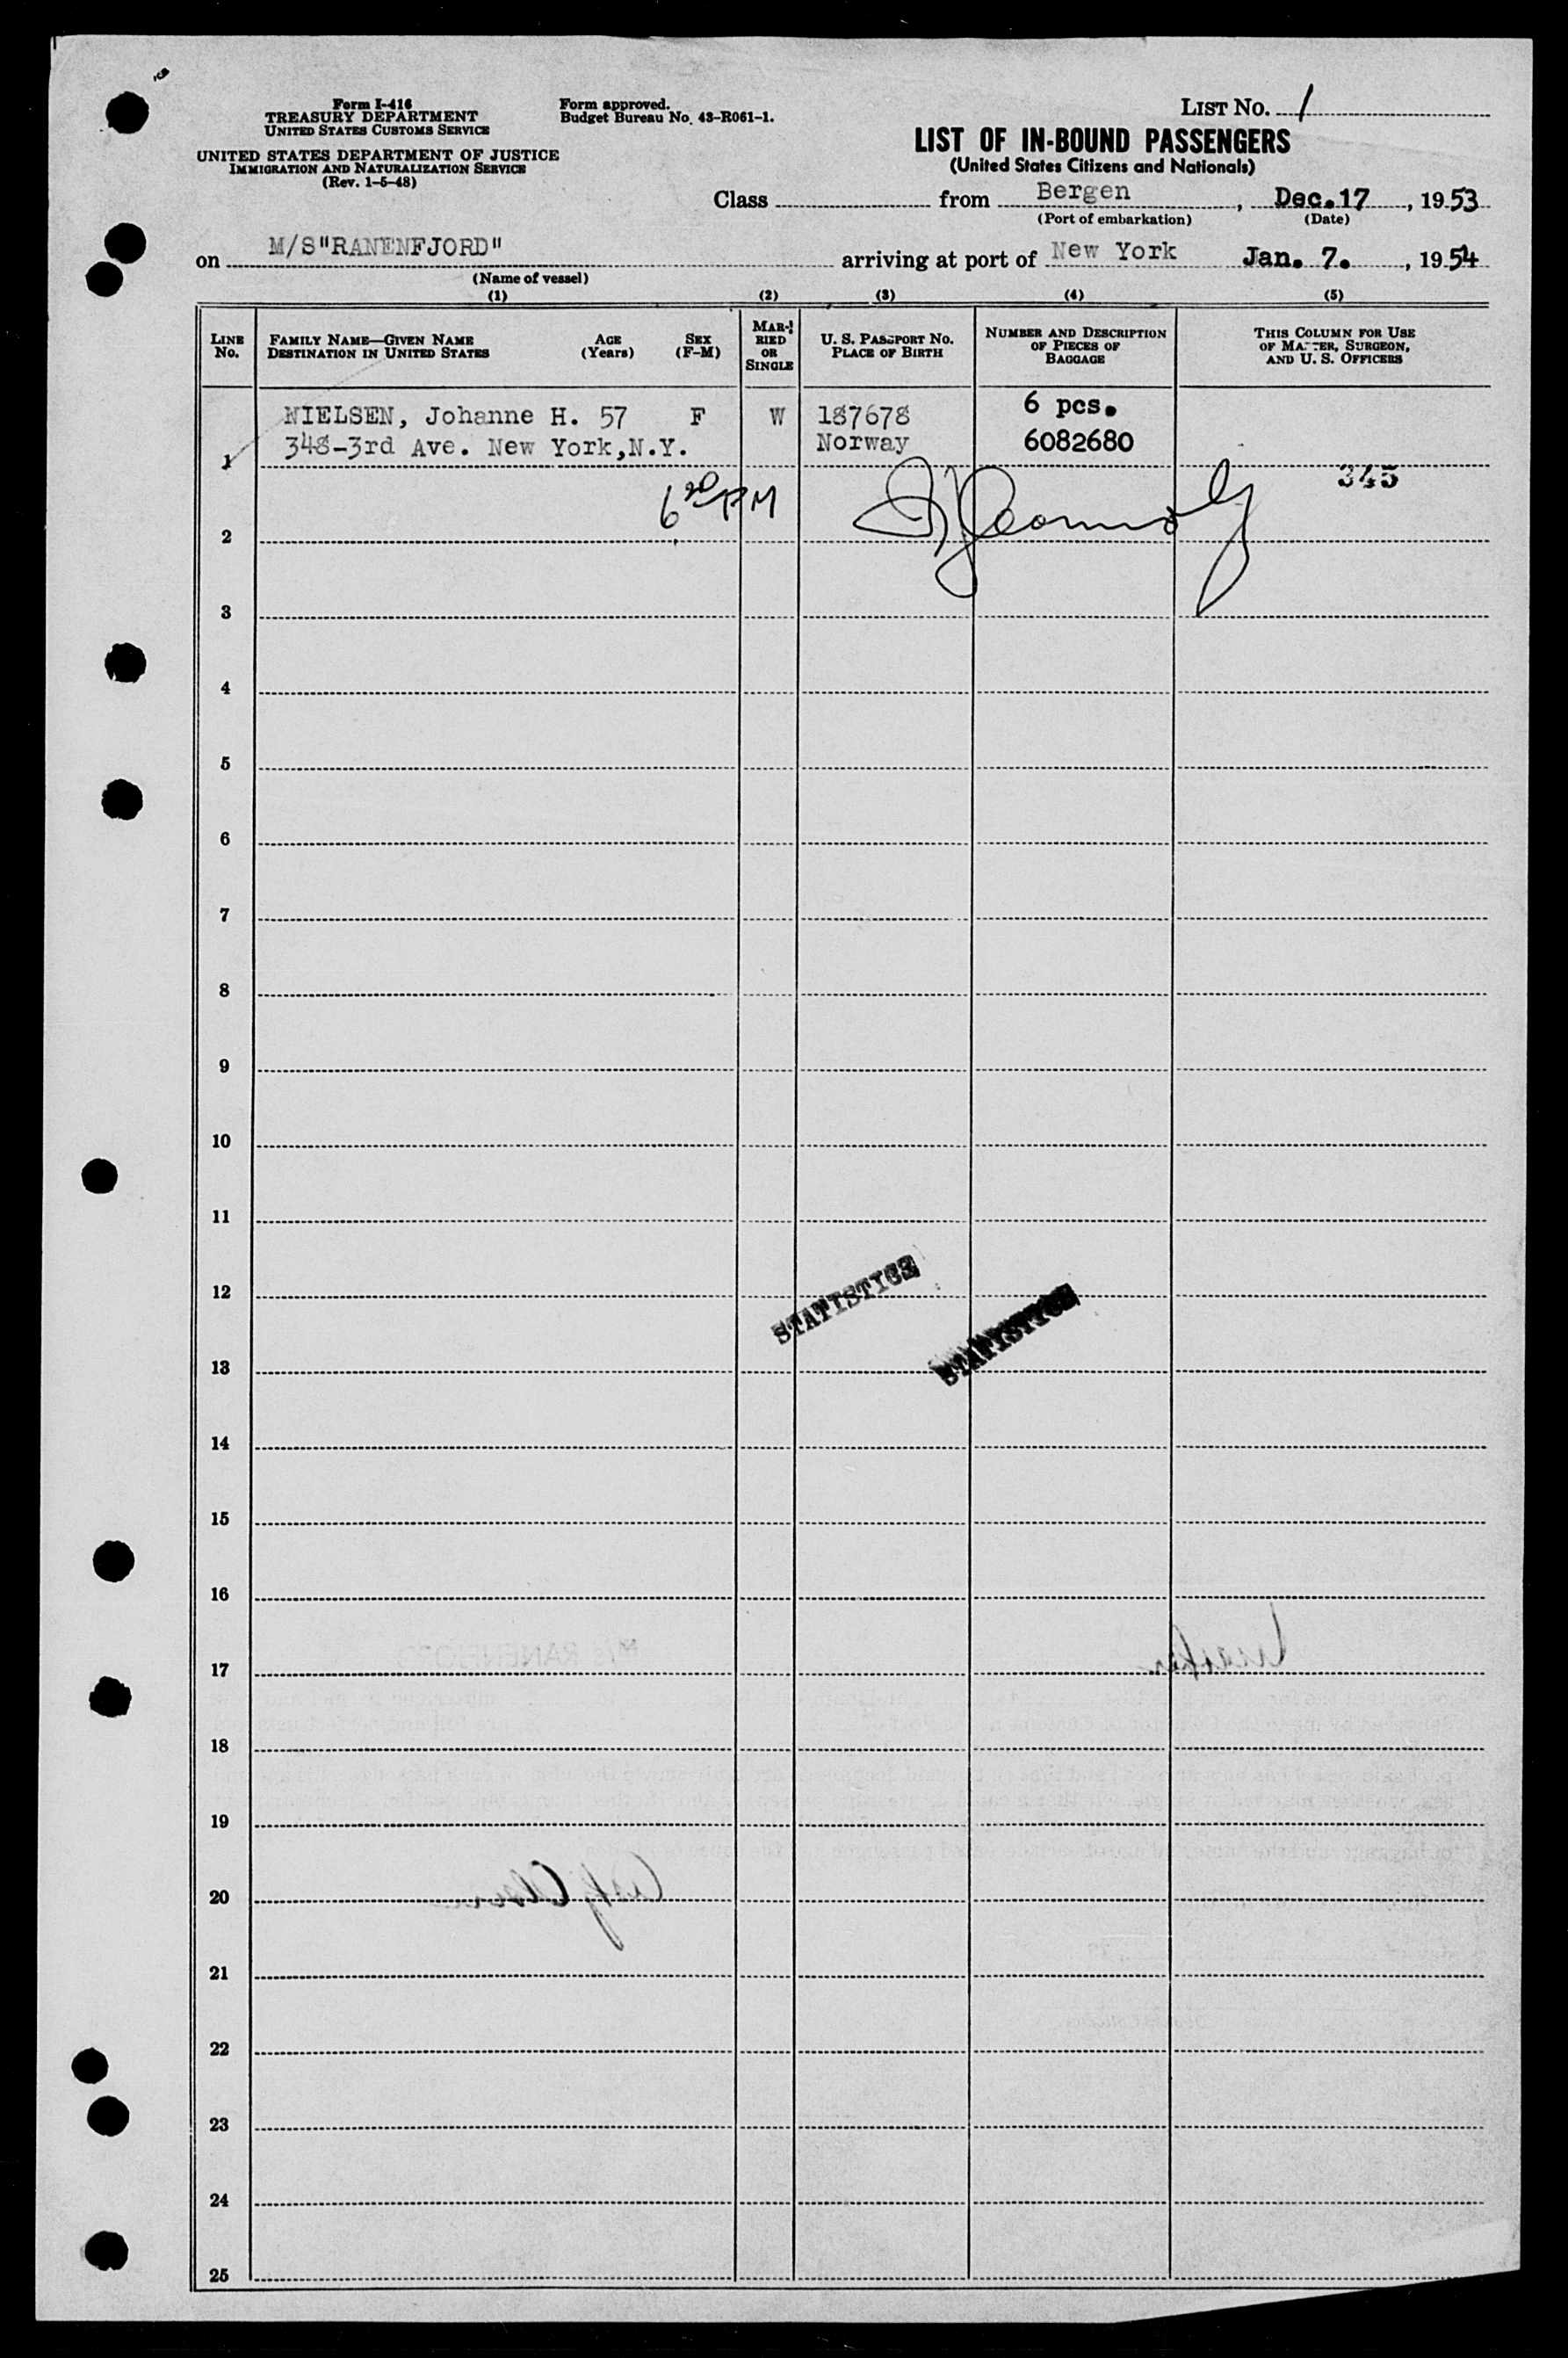 Form I-416
TREASURY DEPARTMENT
UNITED STATES CUSTOMS SERVICE
UNITED STATES DEPARTMENT OF JUSTICE
IMMIGRATION AND NATURALIZATION SERVICE
(Rev. 1-5-48)
Form approved.
Budget Bureau No. 43-R061-1.
LIST No. 1
LIST OF IN-BOUND PASSENGERS
(United States Citizens and Nationals)
Class from Bergen, Dec.17, 1953
(Port of embarkation) (Date)
on M/S"RANENFJORD" arriving at port of New York Jan. 7., 1954
(Name of vessel)
(1) (2) (3) (4) (5)
LINE No.
FAMILY NAME—GIVEN NAME AGE (Years) SEX (F-M)
DESTINATION IN UNITED STATES
MARRIED OR SINGLE
U. S. PASSPORT No.
PLACE OF BIRTH
NUMBER AND DESCRIPTION OF PIECES OF BAGGAGE
THIS COLUMN FOR USE OF MASTER, SURGEON, AND U. S. OFFICERS
NIELSEN, Johanne H. 57 F W 187678 6 pcs.
1 348-3rd Ave. New York,N.Y. Norway 6082680
345
6 PM
2
3
4
5
6
7
8
9
10
11
12 STATISTICS
13 STATISTICS
14
15
16
17 M/S RANENFJORD
18
19
20
21
22
23
24
25